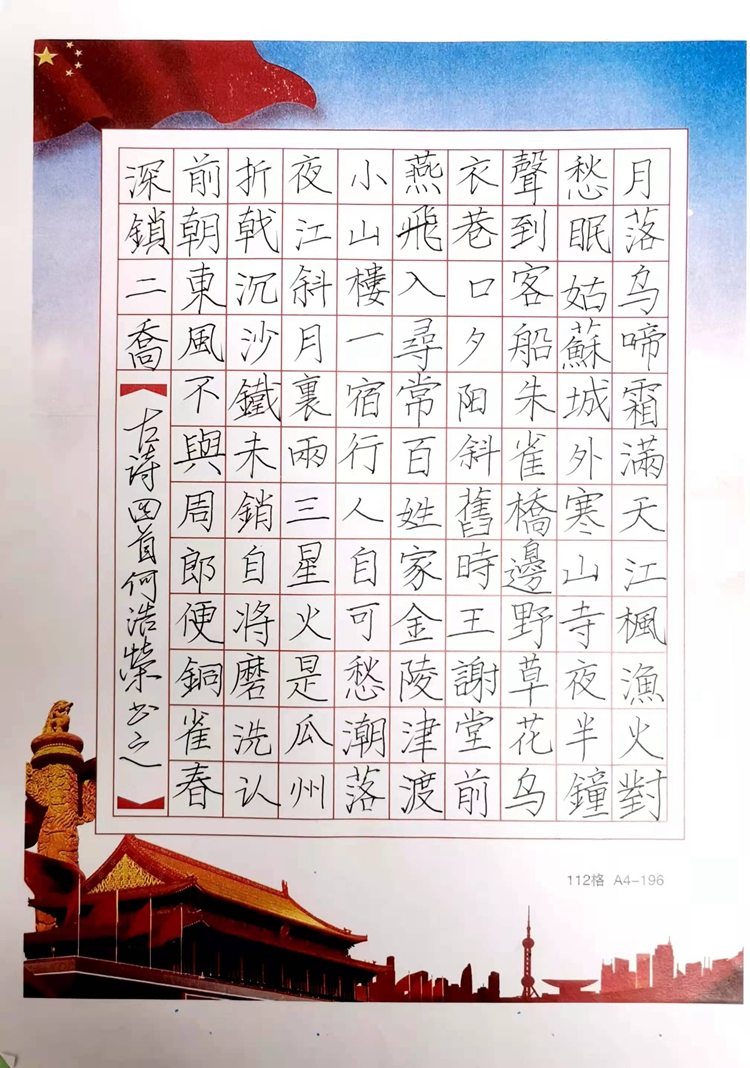 月落乌啼霜滿天江楓漁火對
愁眠姑蘇城外寒山寺夜半鐘
聲到客船朱雀橋邊野草花乌
衣巷口夕阳斜舊時王謝堂前
燕飛入尋常百姓家金陵津渡
小山樓一宿行人自可愁潮落
夜江斜月裏兩三星火是瓜州
折戟沉沙鐵未銷自将磨洗认
前朝東風不與周郎便銅雀春
深鎖二喬
古诗四首何浩榮书之
112格 A4-196